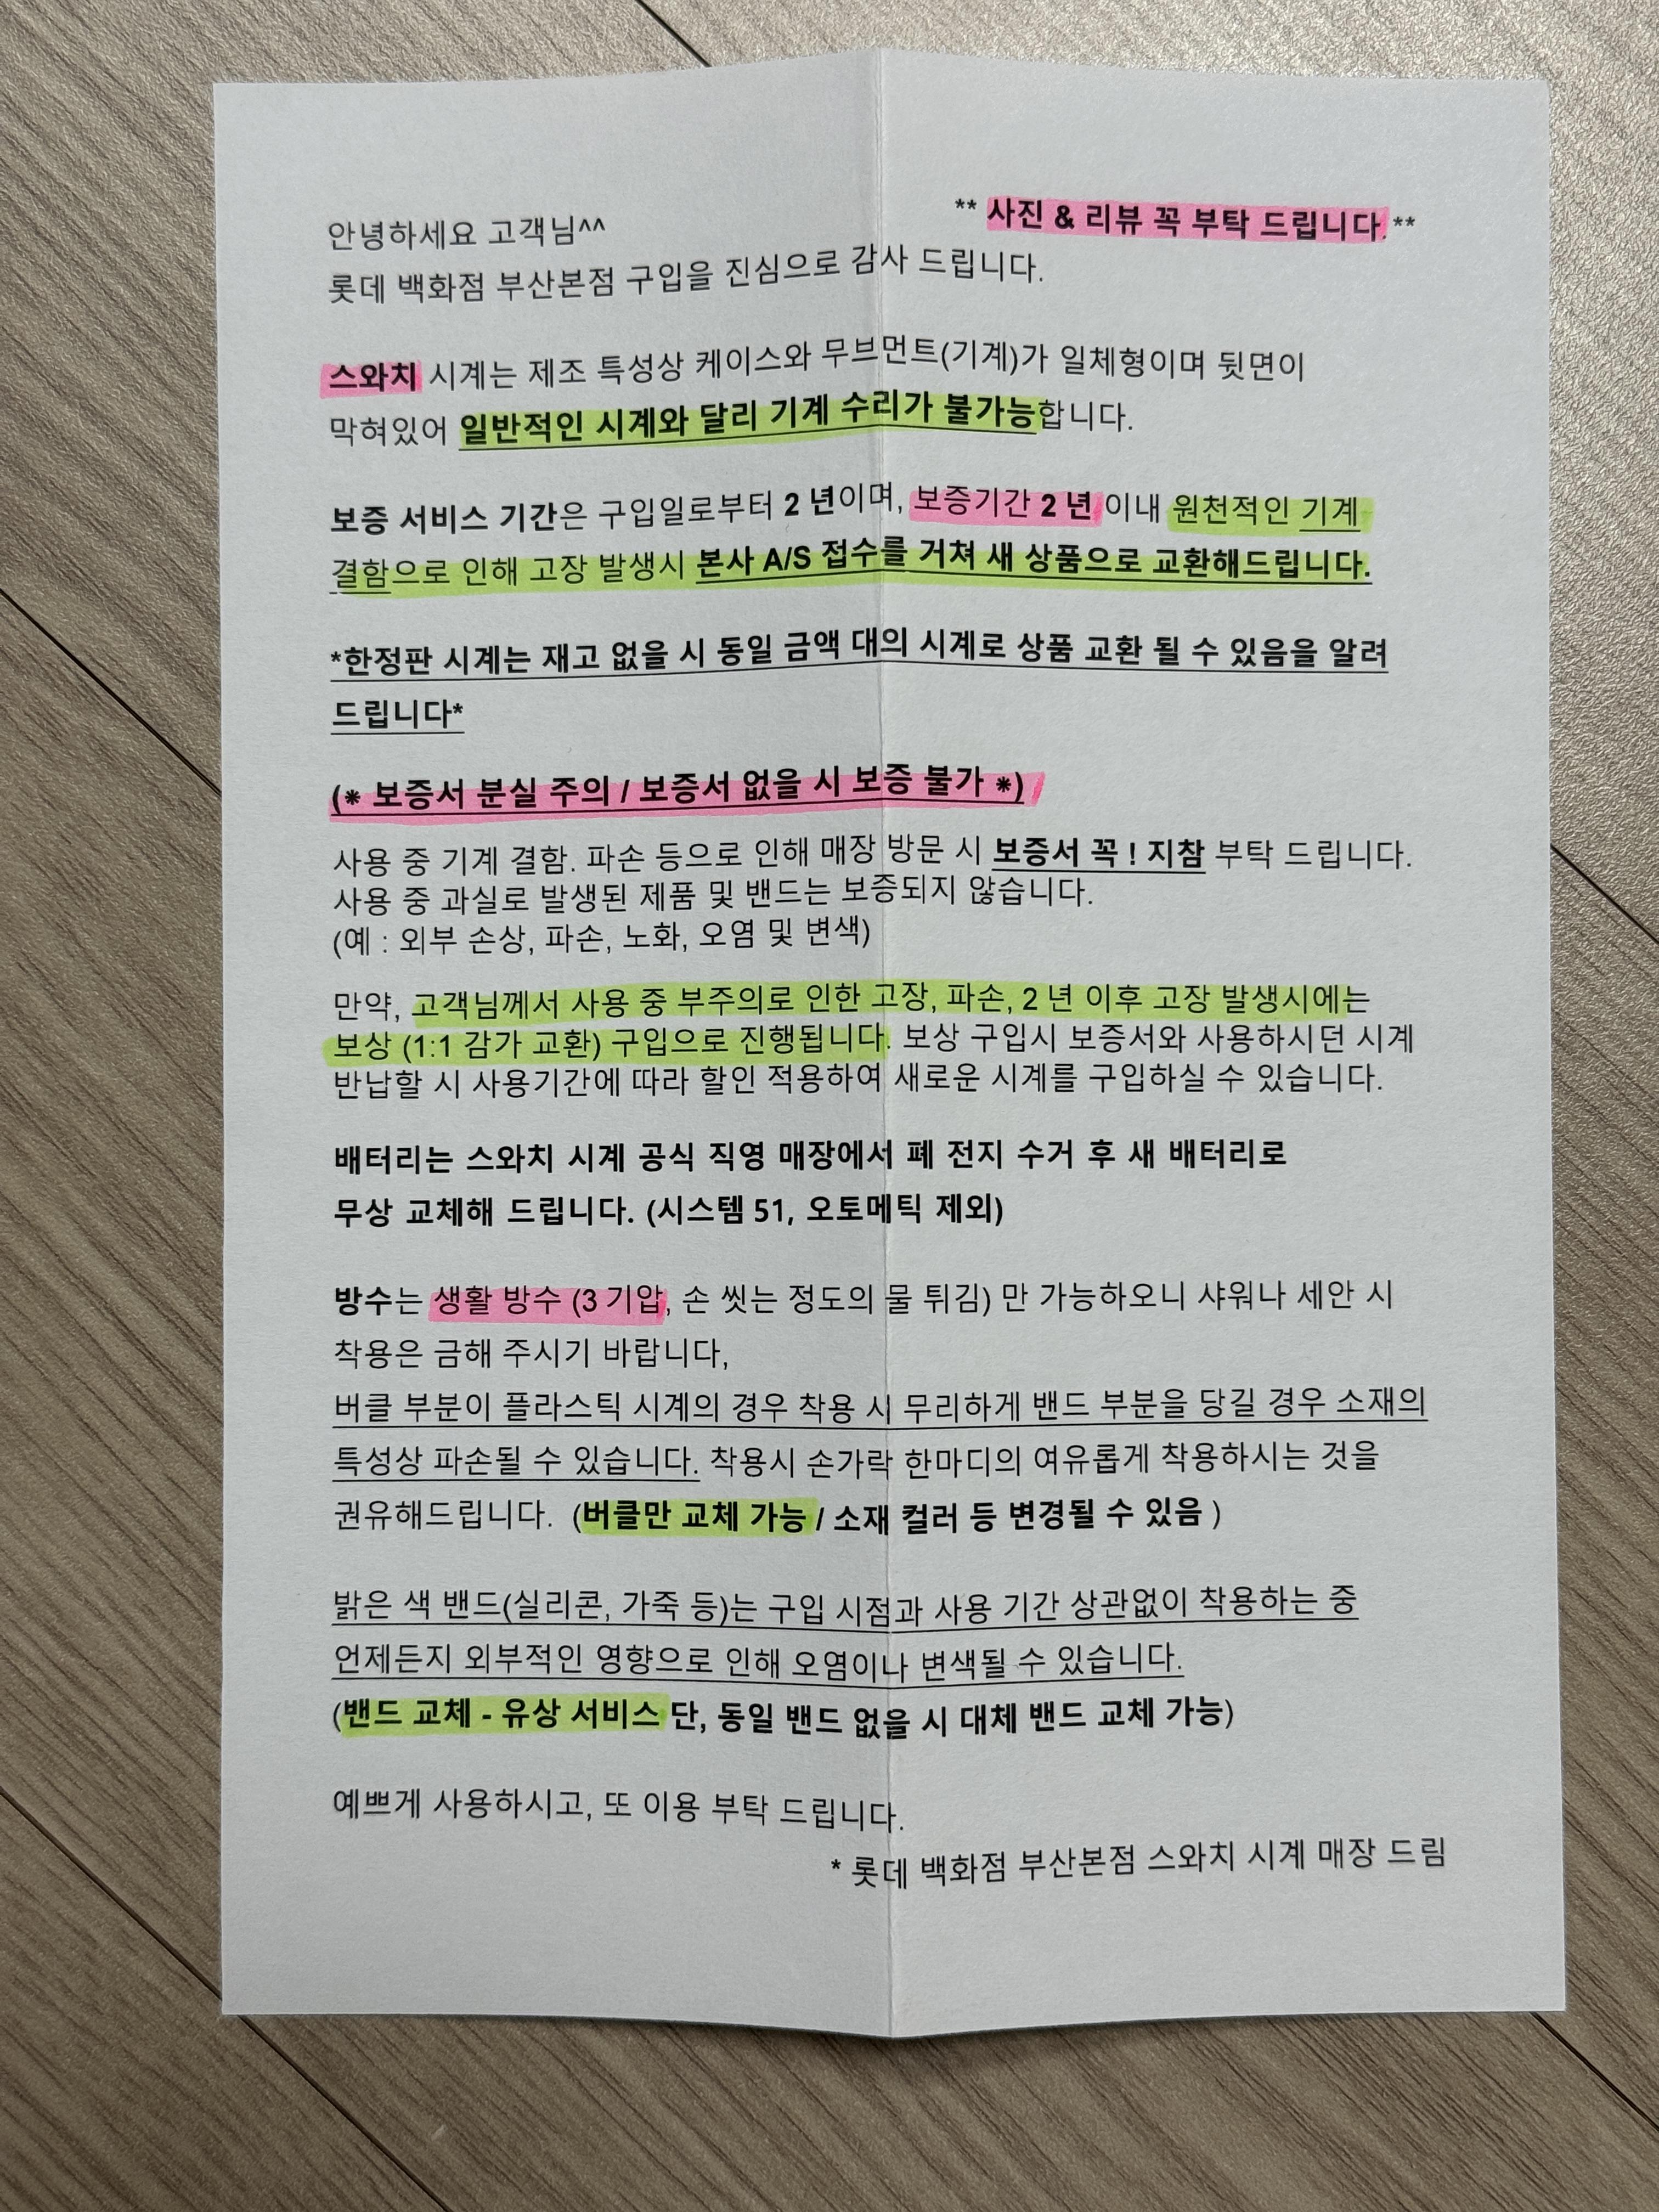 ** 사진 & 리뷰 꼭 부탁 드립니다.**
안녕하세요 고객님^^
롯데 백화점 부산본점 구입을 진심으로 감사 드립니다.
스와치 시계는 제조 특성상 케이스와 무브먼트(기계)가 일체형이며 뒷면이
막혀있어 일반적인 시계와 달리 기계 수리가 불가능합니다.
보증 서비스 기간은 구입일로부터 2 년이며, 보증기간 2 년 이내 원천적인 기계
결함으로 인해 고장 발생시 본사 A/S 접수를 거쳐 새 상품으로 교환해드립니다.
*한정판 시계는 재고 없을 시 동일 금액 대의 시계로 상품 교환 될 수 있음을 알려
드립니다*
(* 보증서 분실 주의 / 보증서 없을 시 보증 불가 *)
사용 중 기계 결함. 파손 등으로 인해 매장 방문 시 보증서 꼭 ! 지참 부탁 드립니다.
사용 중 과실로 발생된 제품 및 밴드는 보증되지 않습니다.
(예 : 외부 손상, 파손, 노화, 오염 및 변색)
만약, 고객님께서 사용 중 부주의로 인한 고장, 파손, 2 년 이후 고장 발생시에는
보상 (1:1 감가 교환) 구입으로 진행됩니다. 보상 구입시 보증서와 사용하시던 시계
반납할 시 사용기간에 따라 할인 적용하여 새로운 시계를 구입하실 수 있습니다.
배터리는 스와치 시계 공식 직영 매장에서 폐 전지 수거 후 새 배터리로
무상 교체해 드립니다. (시스템 51, 오토메틱 제외)
방수는 생활 방수 (3 기압, 손 씻는 정도의 물 튀김) 만 가능하오니 샤워나 세안 시
착용은 금해 주시기 바랍니다,
버클 부분이 플라스틱 시계의 경우 착용 시 무리하게 밴드 부분을 당길 경우 소재의
특성상 파손될 수 있습니다. 착용시 손가락 한마디의 여유롭게 착용하시는 것을
권유해드립니다. (버클만 교체 가능 / 소재 컬러 등 변경될 수 있음 )
밝은 색 밴드(실리콘, 가죽 등)는 구입 시점과 사용 기간 상관없이 착용하는 중
언제든지 외부적인 영향으로 인해 오염이나 변색될 수 있습니다.
(밴드 교체 - 유상 서비스 단, 동일 밴드 없을 시 대체 밴드 교체 가능)
예쁘게 사용하시고, 또 이용 부탁 드립니다.
* 롯데 백화점 부산본점 스와치 시계 매장 드림